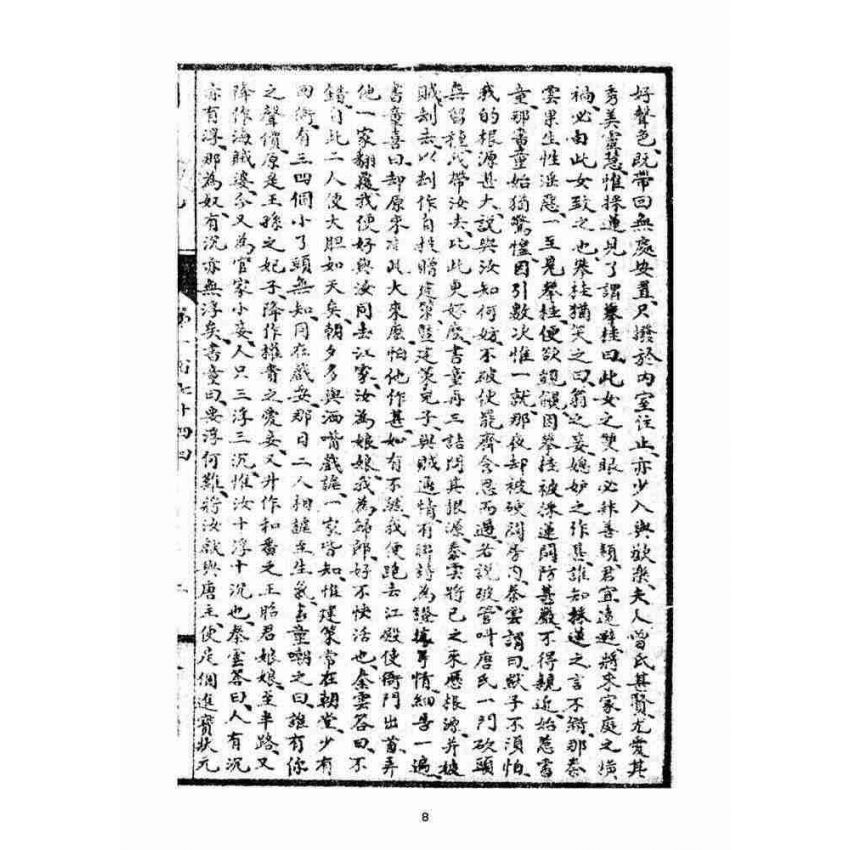 好聲色、既帶回無處安置、只撥於內室住止、亦少入與歡樂、夫人曾氏甚賢、尤愛其
秀美靈慧、惟採蓮見了謂攀桂曰、此女之雙眼、必非善類、君宜遠避、將來家庭之橫
禍、必由此女致之也、攀桂猶笑之曰、翁之妾、媳妒之作甚、誰知採蓮之言不錯、那秦
雲果生性淫惡、一至見攀桂、便欲覬覦、因攀桂被採蓮關防甚嚴、不得親近、始惹書
童、那書童始猶驚惶、因引數次、惟一就、那夜却被破、問房內、秦雲謂曰、獃子不須怕、
我的根源甚大、說與汝知何妨、不破便罷、齊含忍而過、若說破、管叫唐氏一門砍頭
無留種、我帶汝去、比此更好麼、書童再三詰問其根源、秦雲將己之來歷根源、并被
賊刦去、以刦作自投、贈建策、暨建策兒子與賊通情、有聯詩為證據等情、細告一遍、
書童喜曰、却原來有此大來歷、怕他作甚、如有不然、我便跑去江殿使衙門出首、弄
他一家翻覆、我便好與汝同去江家、汝為娘娘、我為歸郎、好不快活也、秦雲答曰、不
錯、自此二人便大胆如天矣、朝夕多與洒嘴戲謔、一家皆知、惟建策常在朝堂、少有
回衙、有三四個小了頭無知、同在戲耍、那日二人相謔至生氣、書童嘲之曰、誰有你
之聲價、原是王孫之妃子、降作權貴之愛妾、又升作和番之王昭君娘娘、至半路、又
降作海賊婆、今又為官家小妾、人只三浮三沉、惟汝十浮十沉也、秦雲答曰、人有沉
亦有浮、那為奴有沉亦無浮矣、書童曰、要浮何難、將汝獻與唐主、便是個進寶狀元
第一百七十四回
8